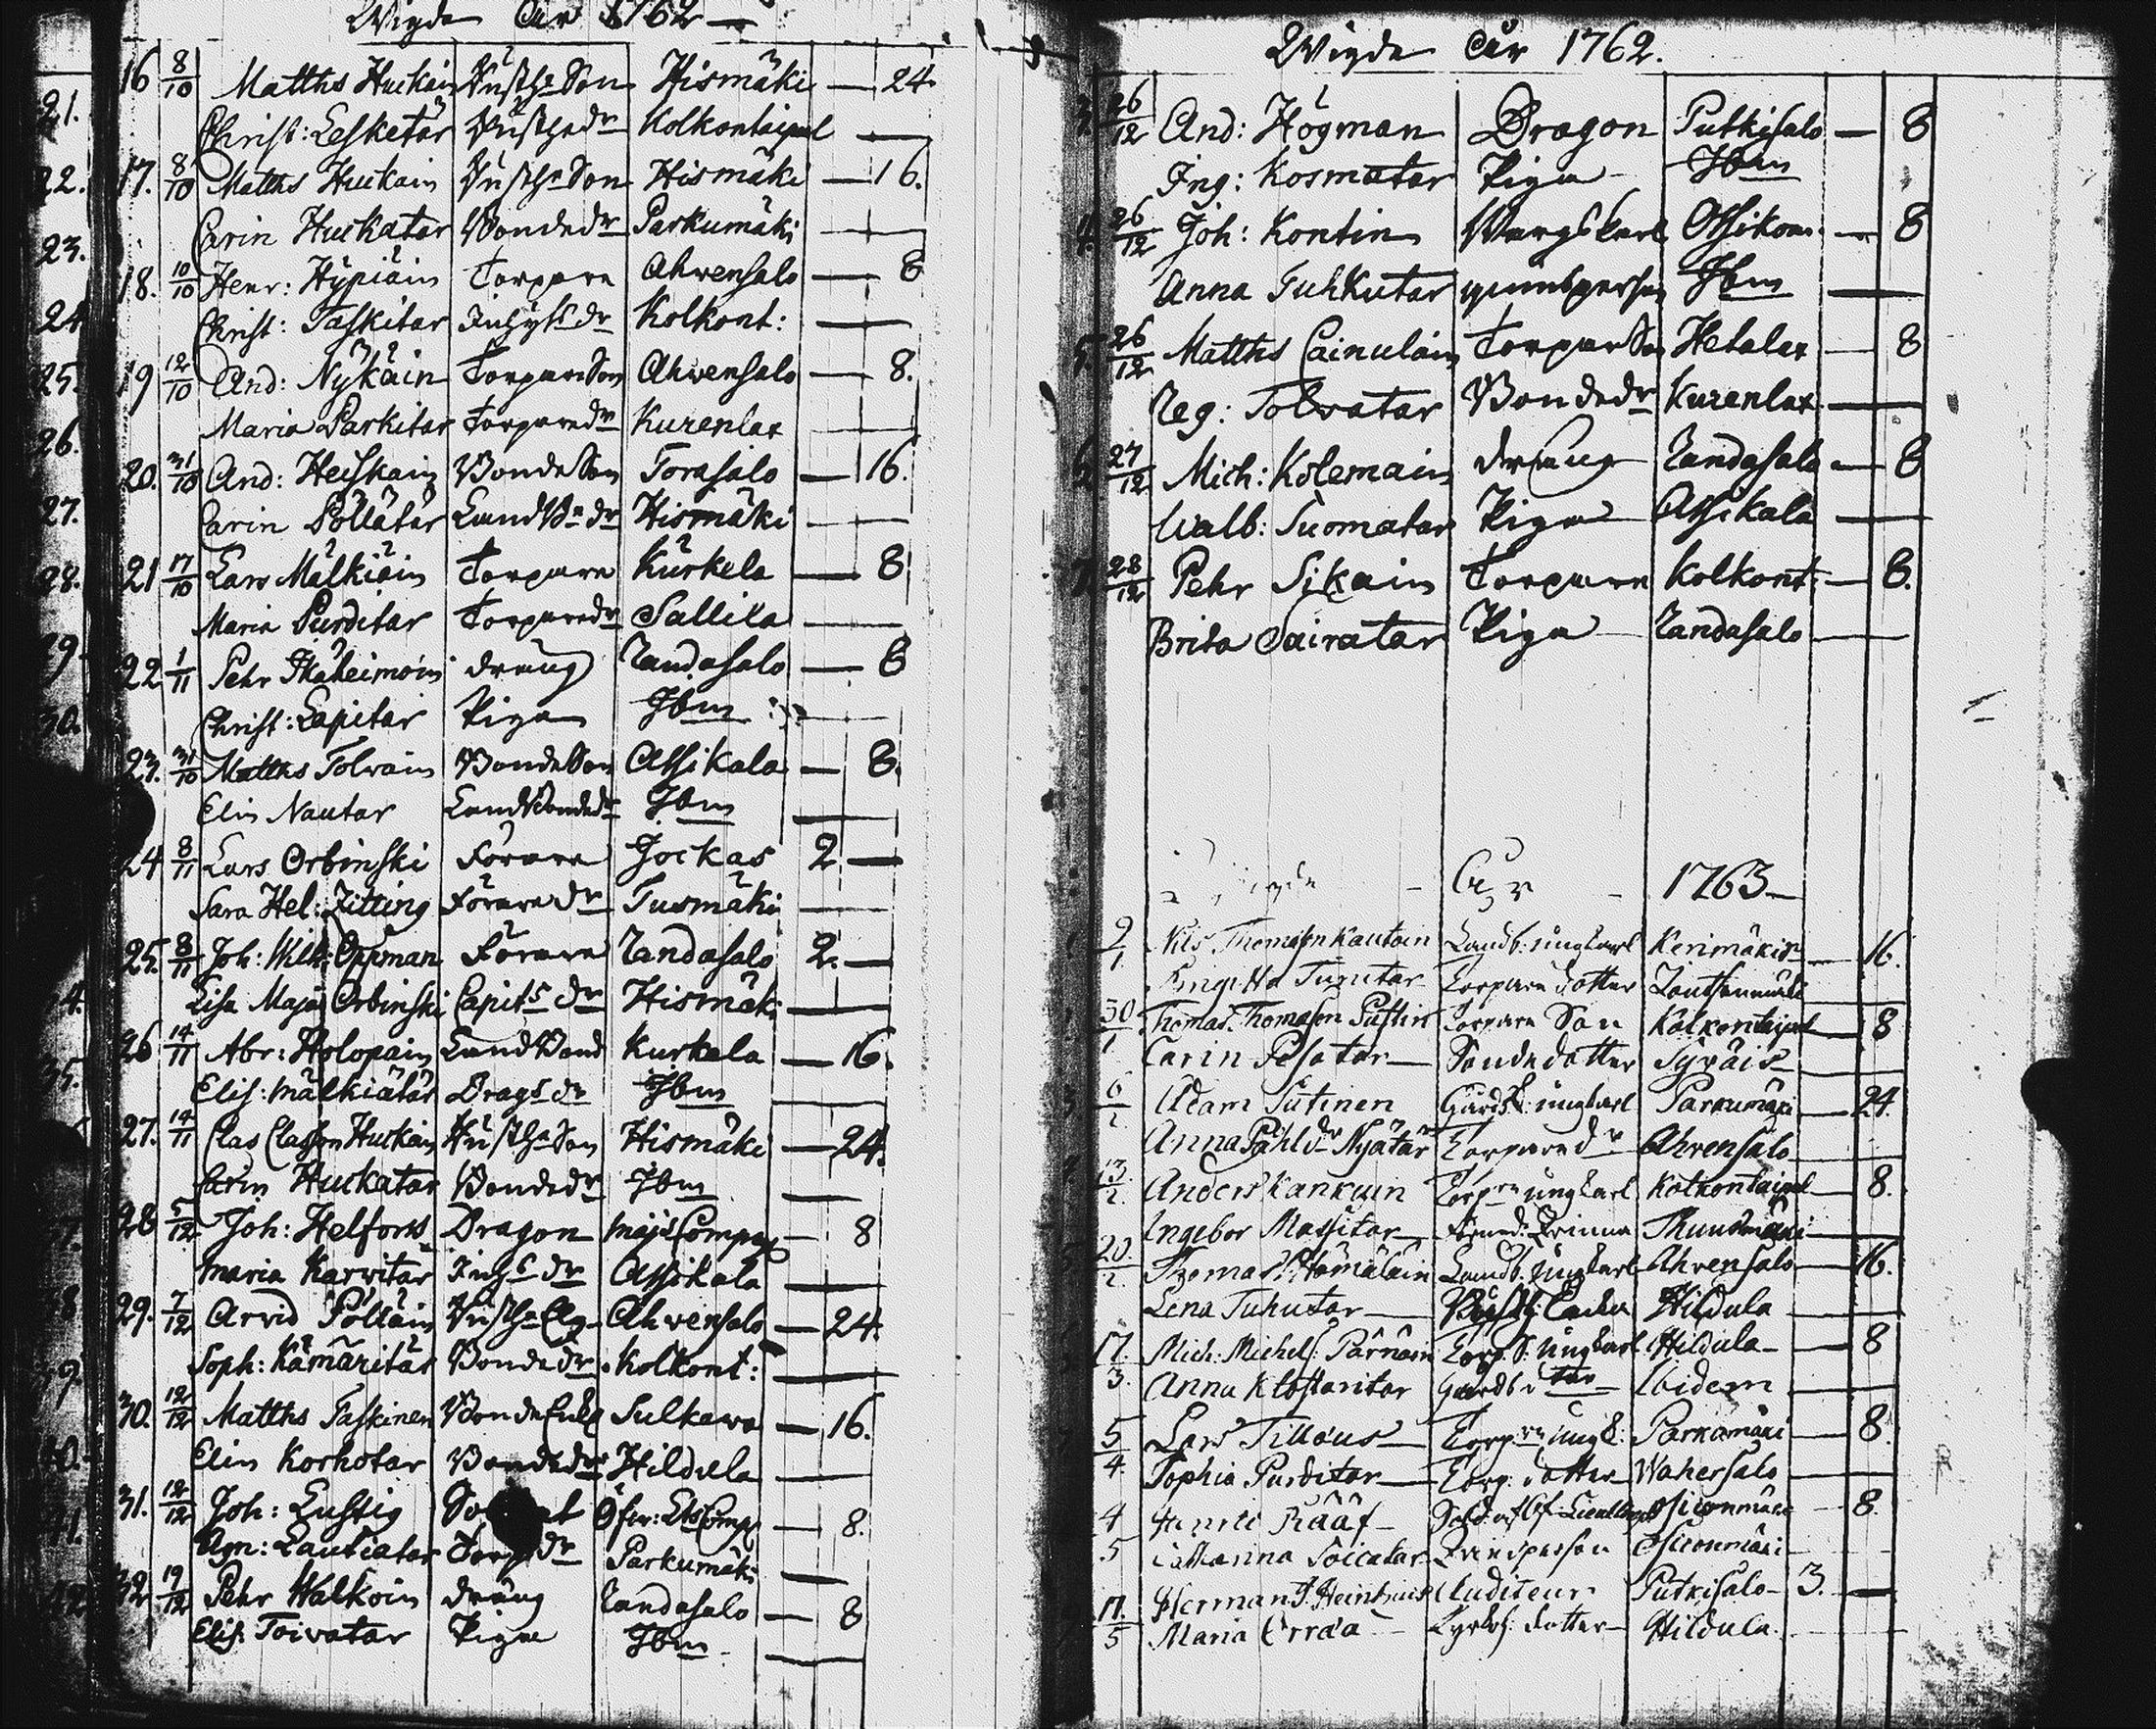 Wigde Åhr 1762
16 8/10 Matths Huckain Husthe Son Hismäki — 24.
Christ: Lesketär Kolkontaipal —
17. 8/10 Matths Huckain Husthe Son Hismäki — 16.
Carin Huckatar Bondedr Parkumäki —
18. 10/10 Henr: Hypiäin Torpare Ahwensalo — 8
Christ: Taskitar Inhyssdr Kolkont: —
19 12/10 And: Nykäin TorpareSon Ahwensalo — 8.
Maria Parkitar Torparedr Kurenlax —
20. 31/10 And: Heiskain BondeSon Torasalo — 16.
Carin Pöllätär LandBe dr Hismäki —
21 17/10 Lars Mälkiäin Torpare Kurkela — 8
Maria Purditar Torparedr Sallila —
22 1/11 Pehr Ikäheimoin dräng Randasalo — 8
Christ: Lapitar Piga Ibm —
23. 31/10 Matths Tolvain BondeSon Assikala — 8.
Elin Nautar LandBondedr Ibm —
24 8/11 Lars Orbinski Förare Jockas 2 —
Sara Hel: Zitting Förare dr Tusmäki —
25. 8/11 Joh: Wilh: Oppman Förare Randasalo 2. —
Lisa Maja Orbinski Capits dr Hismäki —
26 14/11 Abr: Holopain LandBond Kurkela — 16.
Elis: Mälkiätär Drags dr Ibm —
27. 14/11 Clas Classon Huckain Husthe Son Hismäki — 24.
Carin Huckatar Bondedr Ibm —
28 5/12 Joh: Helfors Dragon Majs Comp — 8
Maria Karvitar Inhs dr Assikala —
29. 7/12 Arvid Pöllain Ahwensalo — 24.
Soph: Kämäritär Bondedr Kolkont: —
30. 12/12 Matths Taskinen BondeEnkl Sulkawa — 16.
Elin Korhotar Bondedr Hildula —
31. 12/12 Joh: Lustig Öfw: Lts Comp — 8.
Agn: Lautiatar dr Parkumäki —
32 19/12 Pehr Walkoin dräng Randasalo — 8
Elis: Toivatar Piga Ibm —
Wigde Åhr 1762.
3. 26/12 And: Högman Dragon Putkisalo — 8
Ing: Kosmatar Piga Ibm
4. 26/12 Joh: Kontin — 8
Anna Tuhkutar Ibm —
5. 26/12 Matths Cainulain TorpareSon Hetalax — 8
Reg: Tolvatar Bondedr Kurenlax —
6 27/12 Mich: Kolemain dräng Randasalo — 8
Walb: Tuomatar Piga Assikala —
7 28/12 Pehr Sikain Torpare Kolkont: — 8.
Brita Sairatar Piga Randasalo —
Åhr 1763
9/1 Nils Thomasson Kautoin Landb: ungkarl Kerimäki — 16.
Torpare dotter
30/1 Thomas Thomason Pustin Torpare Son Kolkontaipal — 8
Carin Pesatar — Bondedotter —
6/2 Adam Putinen ungkarl Parkumäki — 24.
Anna Påhldr Nyätär Torparedr Ahvensalo
13./2. Anders Kankuin Torpre ungkarl Kolkontaipal — 8.
Ingebor Massitar Qvinna
20./2. Thomas Hämäläin Landb: Ungkarl Ahvensalo — 16.
Lena Tuhutar — Hildula —
17./3. Mich: Michels: Pärnäin Torp. S: Ungkarl Hildula — 8
Anna Klostaritar Ibidem —
5/4. Lars Tillous — Torpre Parkumäki — 8.
Sophia Purditar — Torp: dotter Wahersalo —
4/5 Rääf — — 8.
Catharina
17./5 Herman Auditeur Putkisalo — 3. —
Maria dotter Hildula. —